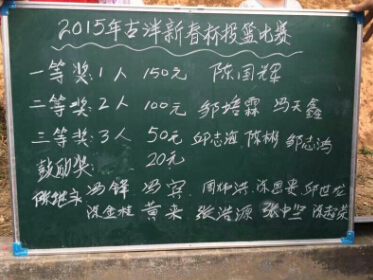 2015年古泮新春杯投篮比赛
一等奖:1人 150元 陈国辉
二等奖:2人 100元 邹培霖 冯天鑫
三等奖:3人 50元 邱志海 陈彬 邹志鸿
鼓励奖: 20元
冯锋 冯宾 周炳洪 邱世龙
黄来 张浩源 张中坚